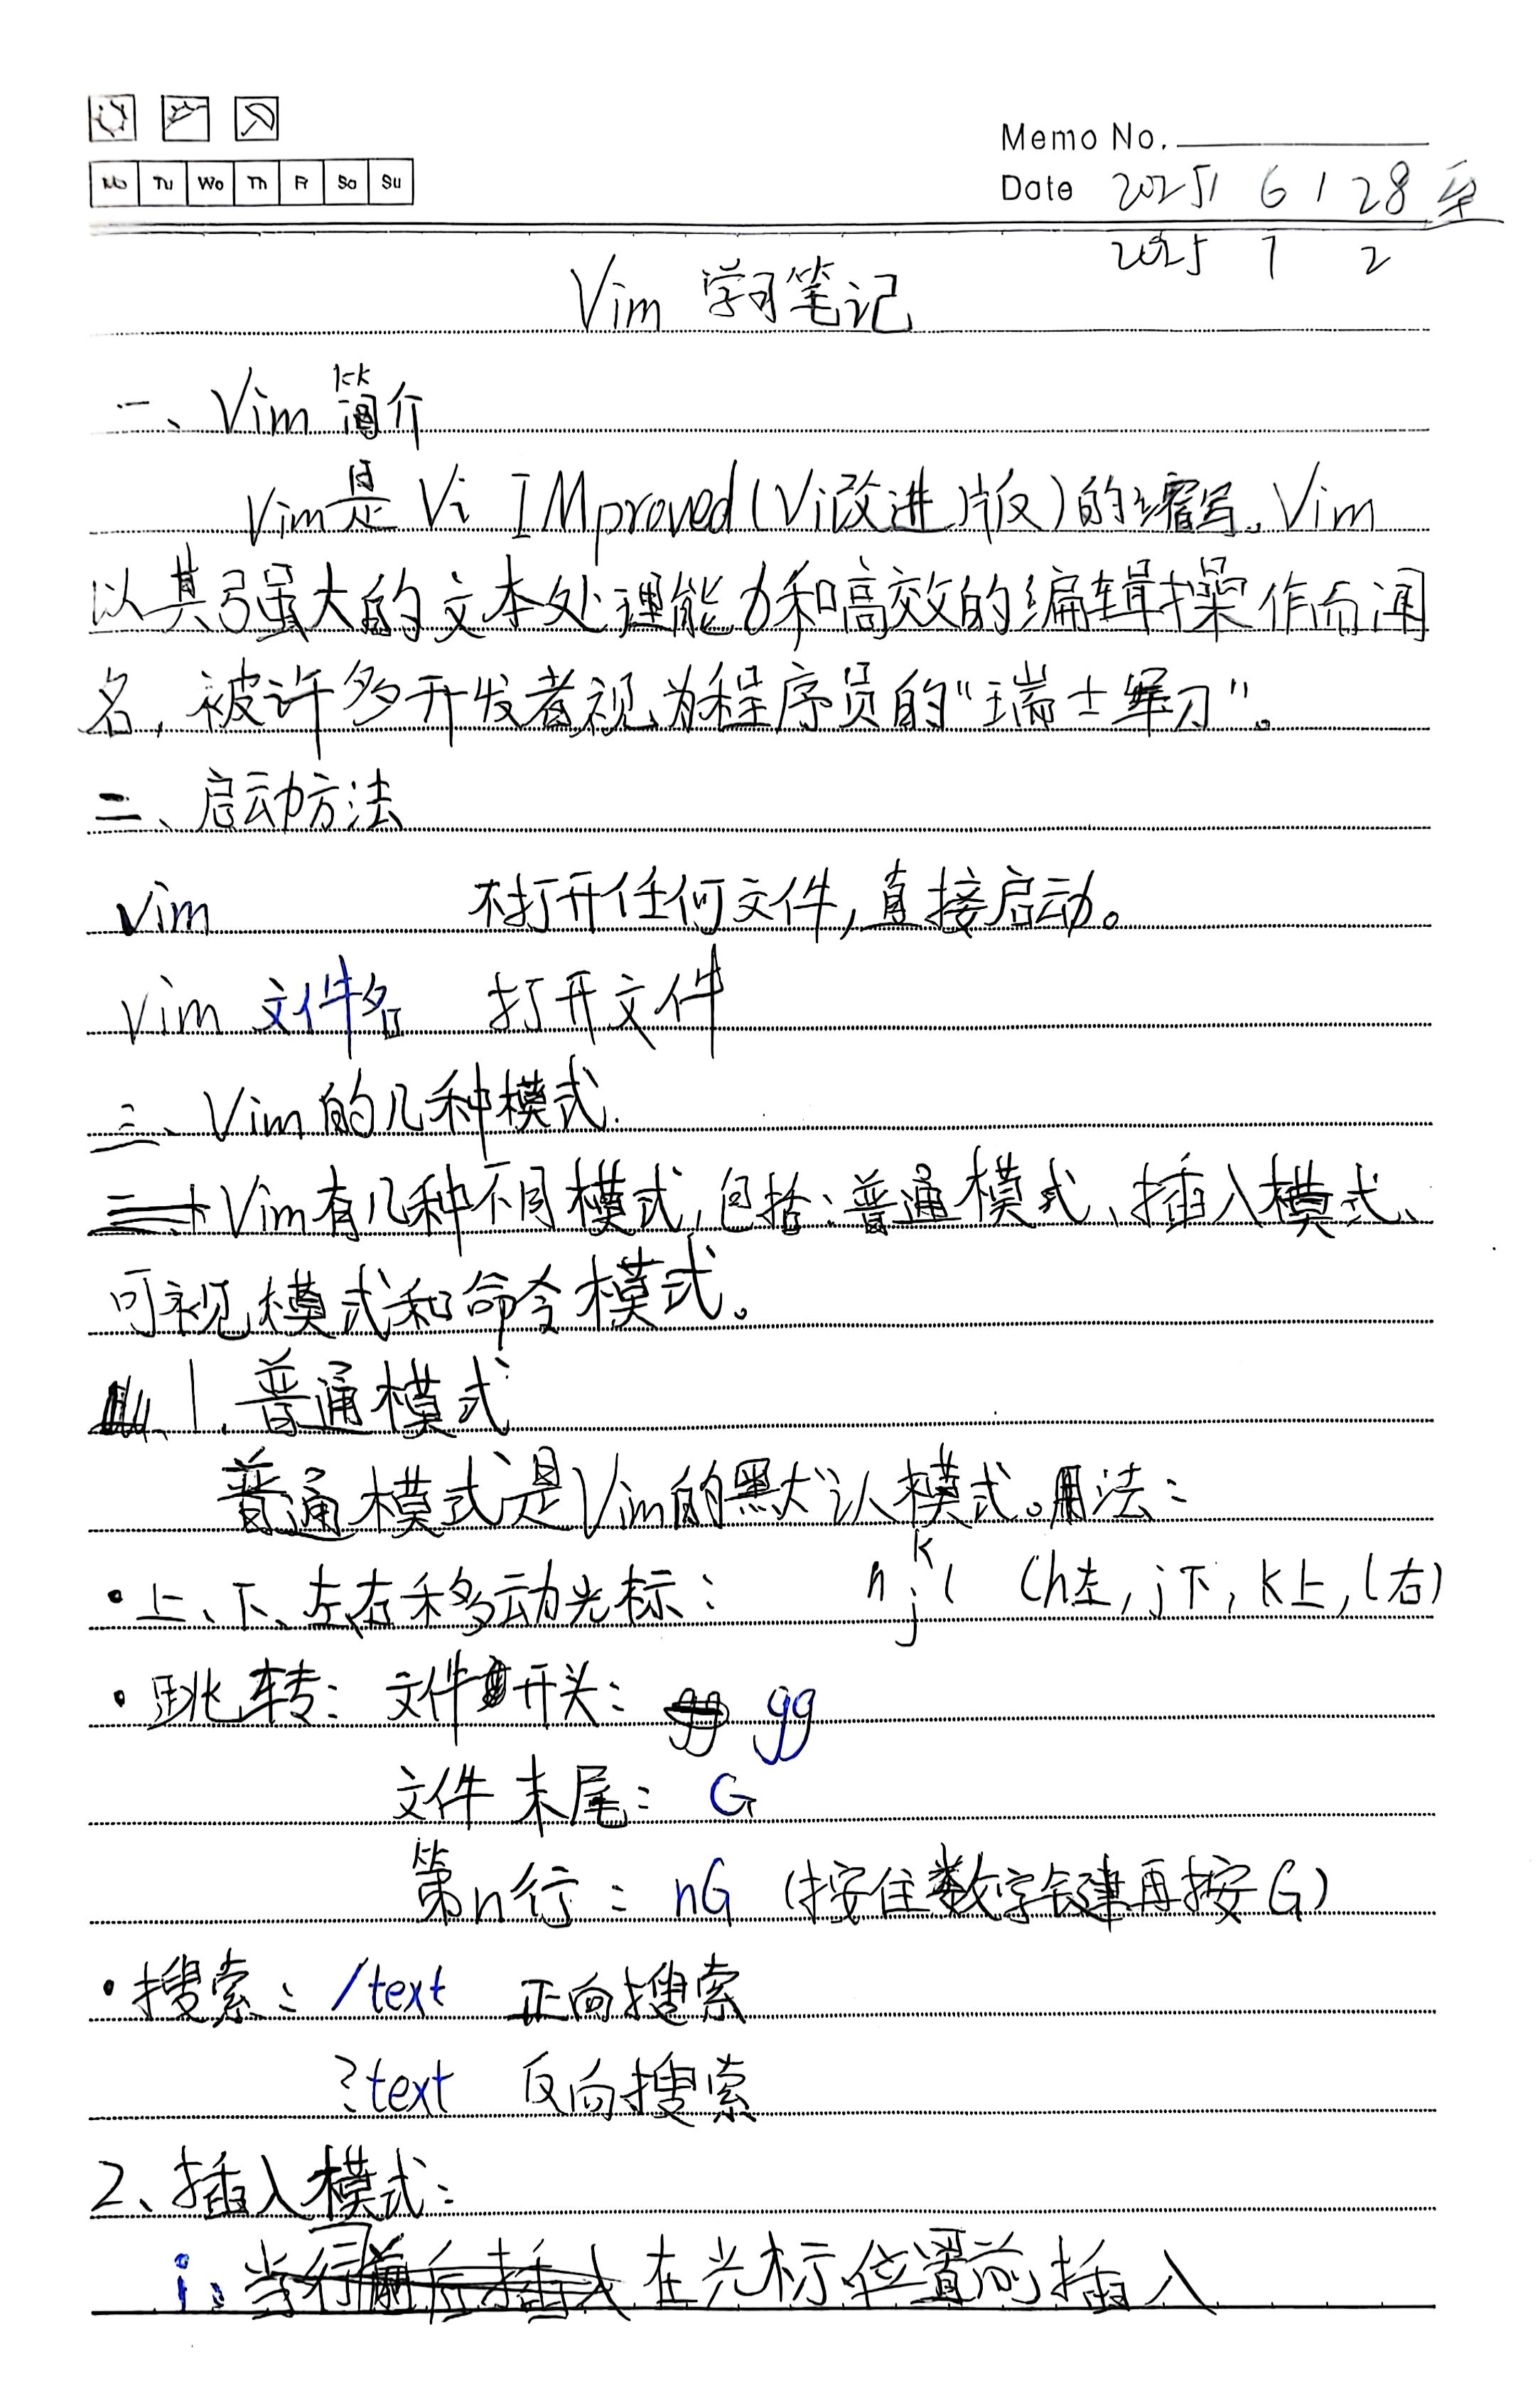 Memo No.
Mo Tu We Th Fr Sa Su
Date 2025/ 6 / 28 至
2025 7 2
Vim 学习笔记
一、Vim 简介
Vim是 Vi IMproved(Vi改进版)的缩写。Vim
以其强大的文本处理能力和高效的编辑操作而闻
名,被许多开发者视为程序员的“瑞士军刀”。
二、启动方法
vim 不打开任何文件,直接启动。
vim 文件名 打开文件
三、Vim的几种模式.
Vim有几种不同模式,包括:普通模式、插入模式、
可视模式和命令模式。
1.普通模式
普通模式是Vim的默认模式。用法:
•上、下、左、右移动光标: h j k l (h左,j下,k上,l右)
•跳转: 文件开头: gg
文件末尾: G
第n行: nG (按住数字键再按G)
•搜索: /text 正向搜索
?text 反向搜索
2、插入模式:
i: 在光标位置前插入